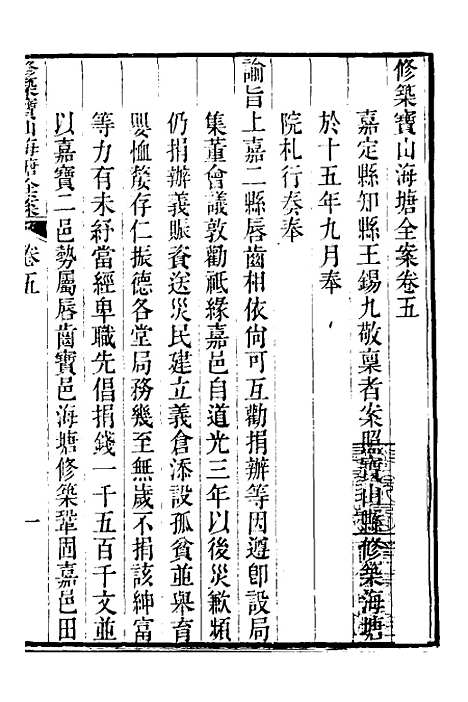 修築寶山海塘全案卷五
嘉定縣知縣王錫九敬稟者案照寶山縣修築海塘
於十五年九月奉
院札行奏奉
諭旨上嘉二縣唇齒相依尙可互勸捐辦等因遵卽設局
集董會議敦勸祗緣嘉邑自道光三年以後災歉頻
仍捐辦義賑資送災民建立義倉添設孤貧並舉育
嬰恤嫠存仁振德各堂局務幾至無歲不捐該紳富
等力有未紓當經卑職先倡捐錢一千五百千文並
以嘉寶二邑勢屬唇齒寶邑海塘修築鞏固嘉邑田
修築寶山海塘全案
卷五
一